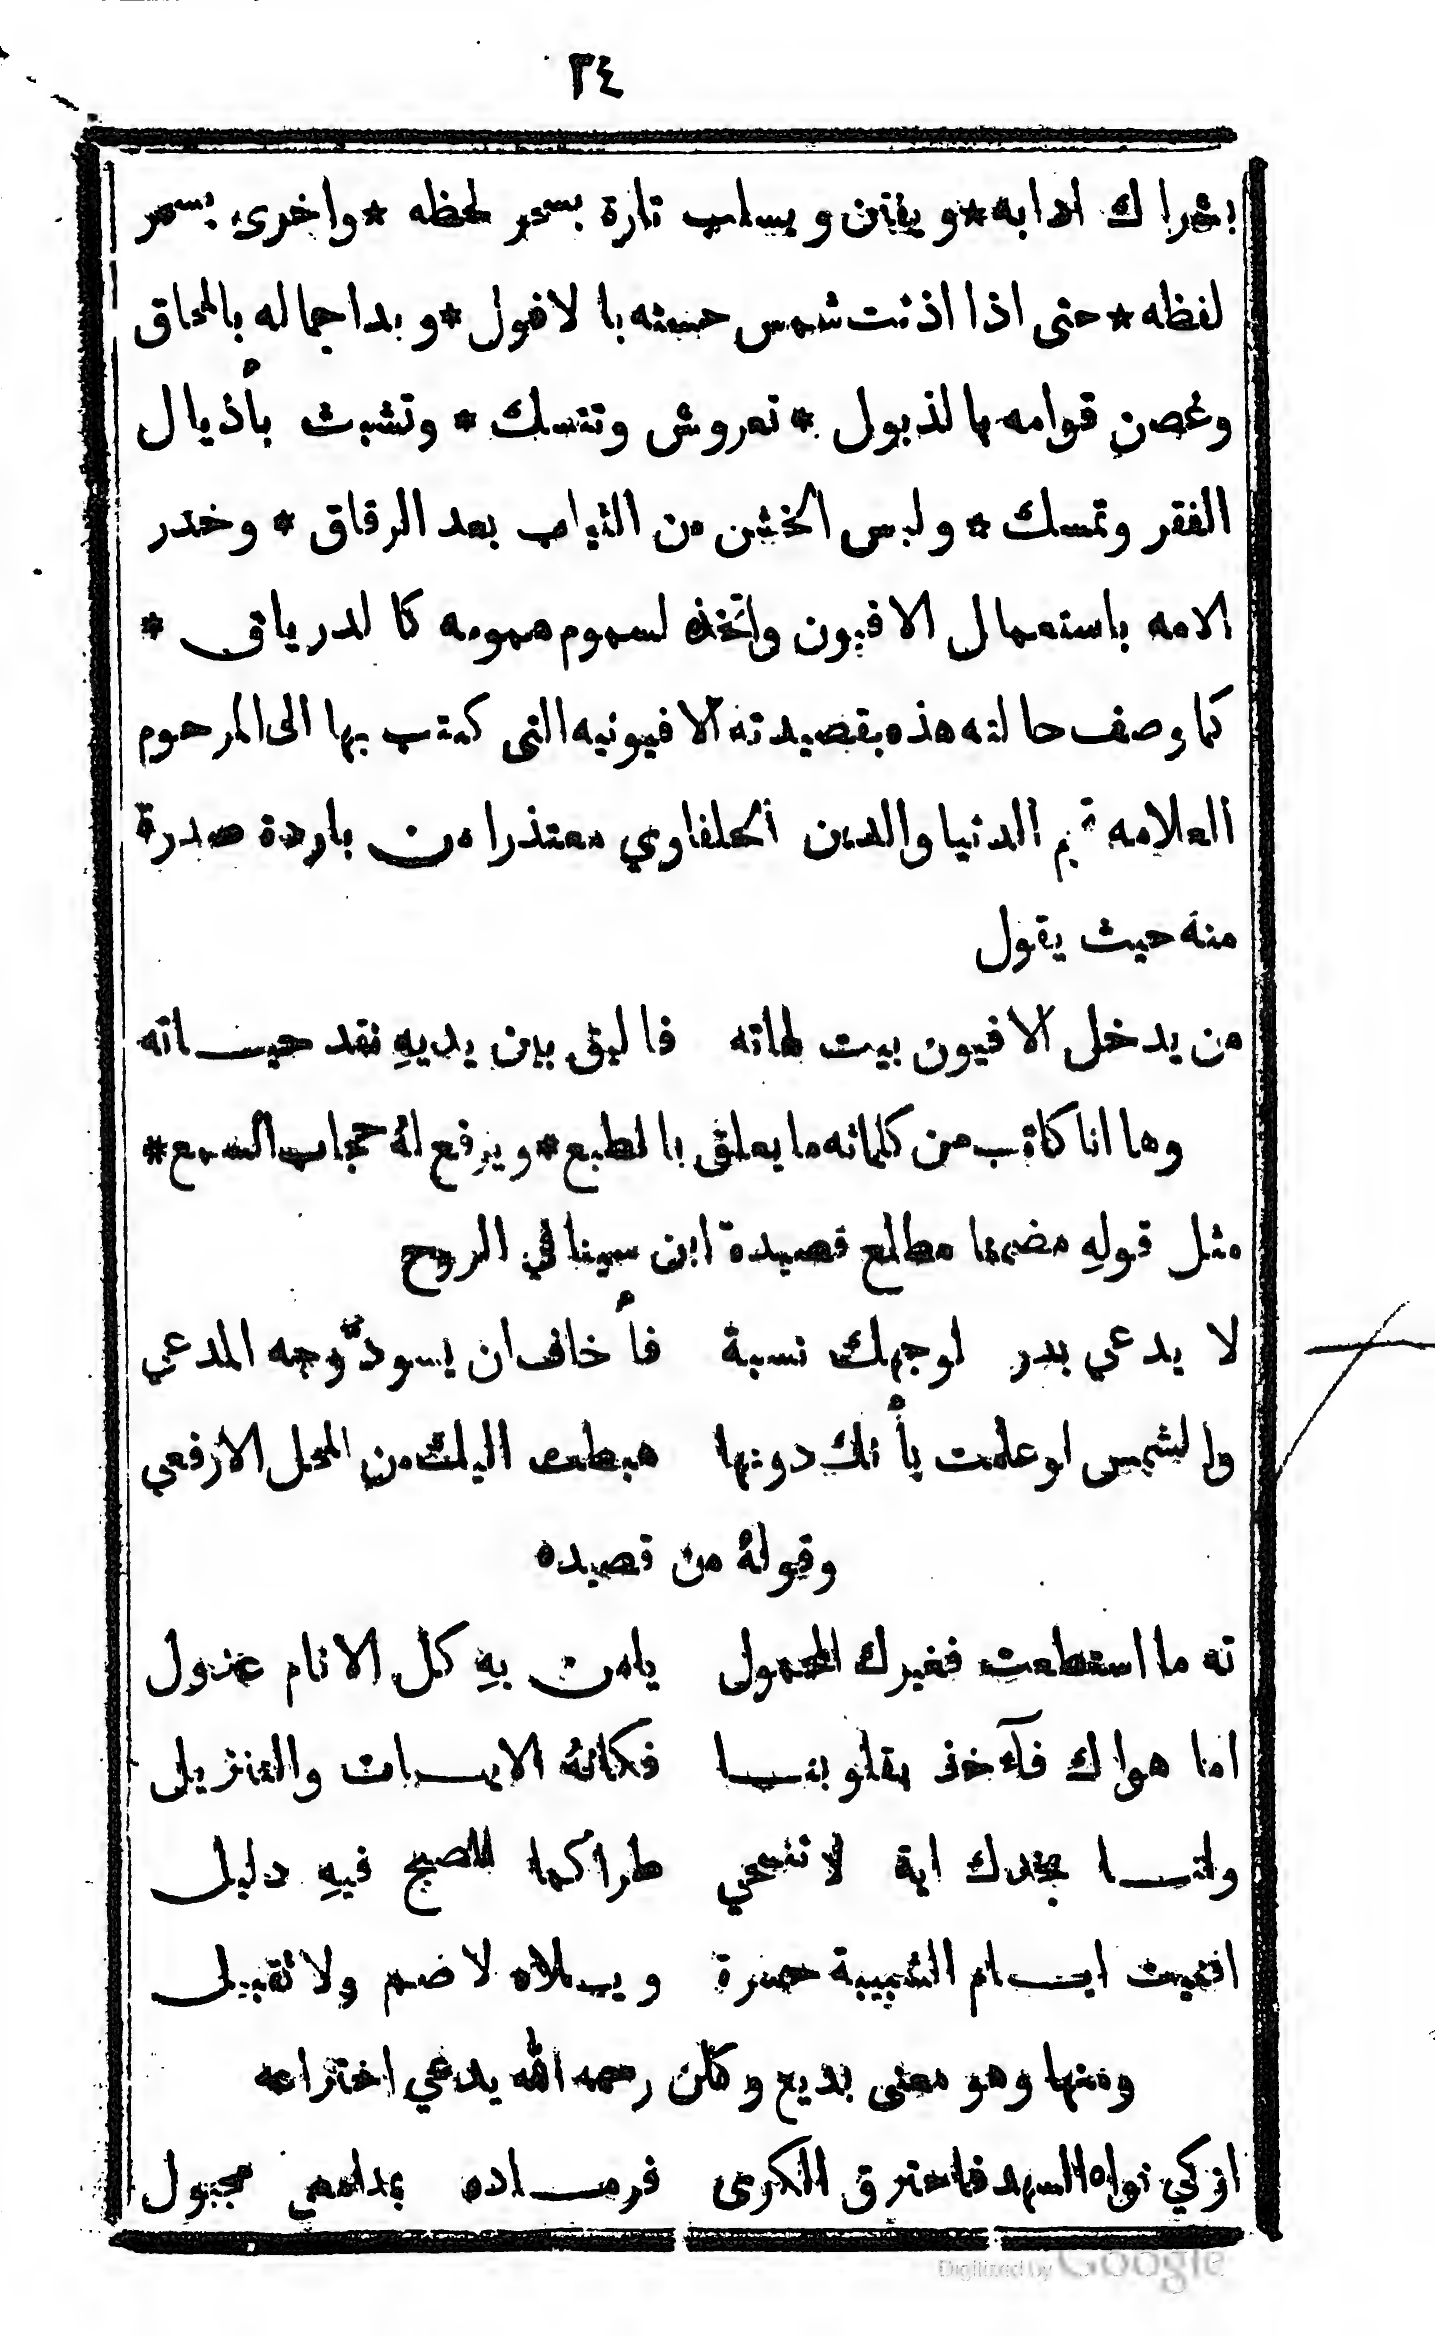 ٣٤
بشراك ادابه * ويفتن ويسلب تارة بسحر لحظه * واخرى بسمر
لفظه * حتى اذا اذنت شمس حسنه بالافول * وبدا جماله بالمحاق
وغصن قوامه بالذبول * تعروش وتنسك * وتشبث بأذيال
الفقر وتمسك * ولبس الخشن من الثياب بعد الرقاق * وخدر
الامه باستعمال الافيون واتخذه لسموم همومه كالدرياق *
كما وصف حالته هذه بقصيدته الافيونيه التي كتب بها الى المرحوم
العلامه نجم الدنيا والدين الحلفاوي معتذرا من باردة صدرة
منه حيث يقول
من يدخل الافيون بيت لهاته فاليلق بين يديهِ نقد حيـاته
وها انا كاتب من كلماته ما يعلق بالطبع * ويرفع لهُ حجاب السمع *
مثل قولهِ مضمنا مطلع قصيدة ابن سينا في الروح
لا يدعي بدر لوجهك نسبة فأخاف ان يسودّ وجه المدعي
والشمس لو علمت بأنك دونها هبطت اليك من المحل الارفعي
وقولهُ من قصيده
ته ما استطعت فغيرك المحمول يامن بهِ كل الانام عذول
اما هواك فآخذ بقلوبنـا فكانهُ الايـات والتنزيل
ولنـا بخدك اية لا تنمحي طرا كما للصبح فيهِ دليل
افنيت ايـام الشبيبة حسرة ويـلاه لا ضم ولا تقبيل
ومنها وهو معنى بديع وكان رحمه الله يدعي اختراعه
اذكي نواه السهد فاحترق الكرى فرمـاده بمدامعي مجبول
Digitized by Google